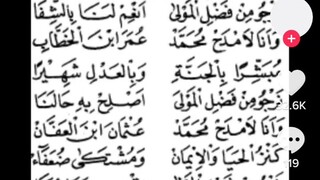 نَرْجُو مِنْ فَضْلِ الْمَوْلَى أَنْعِمْ لَنَا بِالشِّفَا
وَأَنَا لَامْدَحْ مُحَمَّدْ عُمَرَ ابْنَ الْخَطَّابِ
مُبَشِّرًا بِالْجَنَّةِ وَبِالْعَدْلِ شَهِيْرًا
نَرْجُو مِنْ فَضْلِ الْمَوْلَى اَصْلِحْ بِهِ حَالَنَا
وَأَنَا لَامْدَحْ مُحَمَّدْ عُثْمَانَ ابْنَ الْعَفَّانَ
كَنْزُ الْحَيَا وَالْإِيْمَانِ وَمُشْتَكَى ضُعَفَاءُ
.6K
19